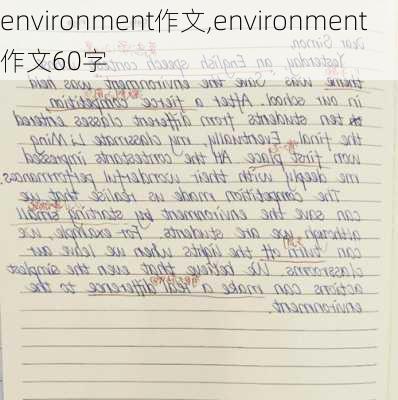 environment作文,environment
作文60字
Dear Simon,
Yesterday, an English speech contest
theme was "Save the environment" was held
in our school. After a fierce competition,
ten students from different classes entered
the final. Eventually, my classmate Li Ming
won first place. All the contestants impressed
me deeply with their wonderful performances.
The competition made us realise that we
can save the environment by starting small
although we are students. For example, we
can turn off the lights when we leave our
classrooms. We believe that even the singlest
actions can make a real difference to the
environment.